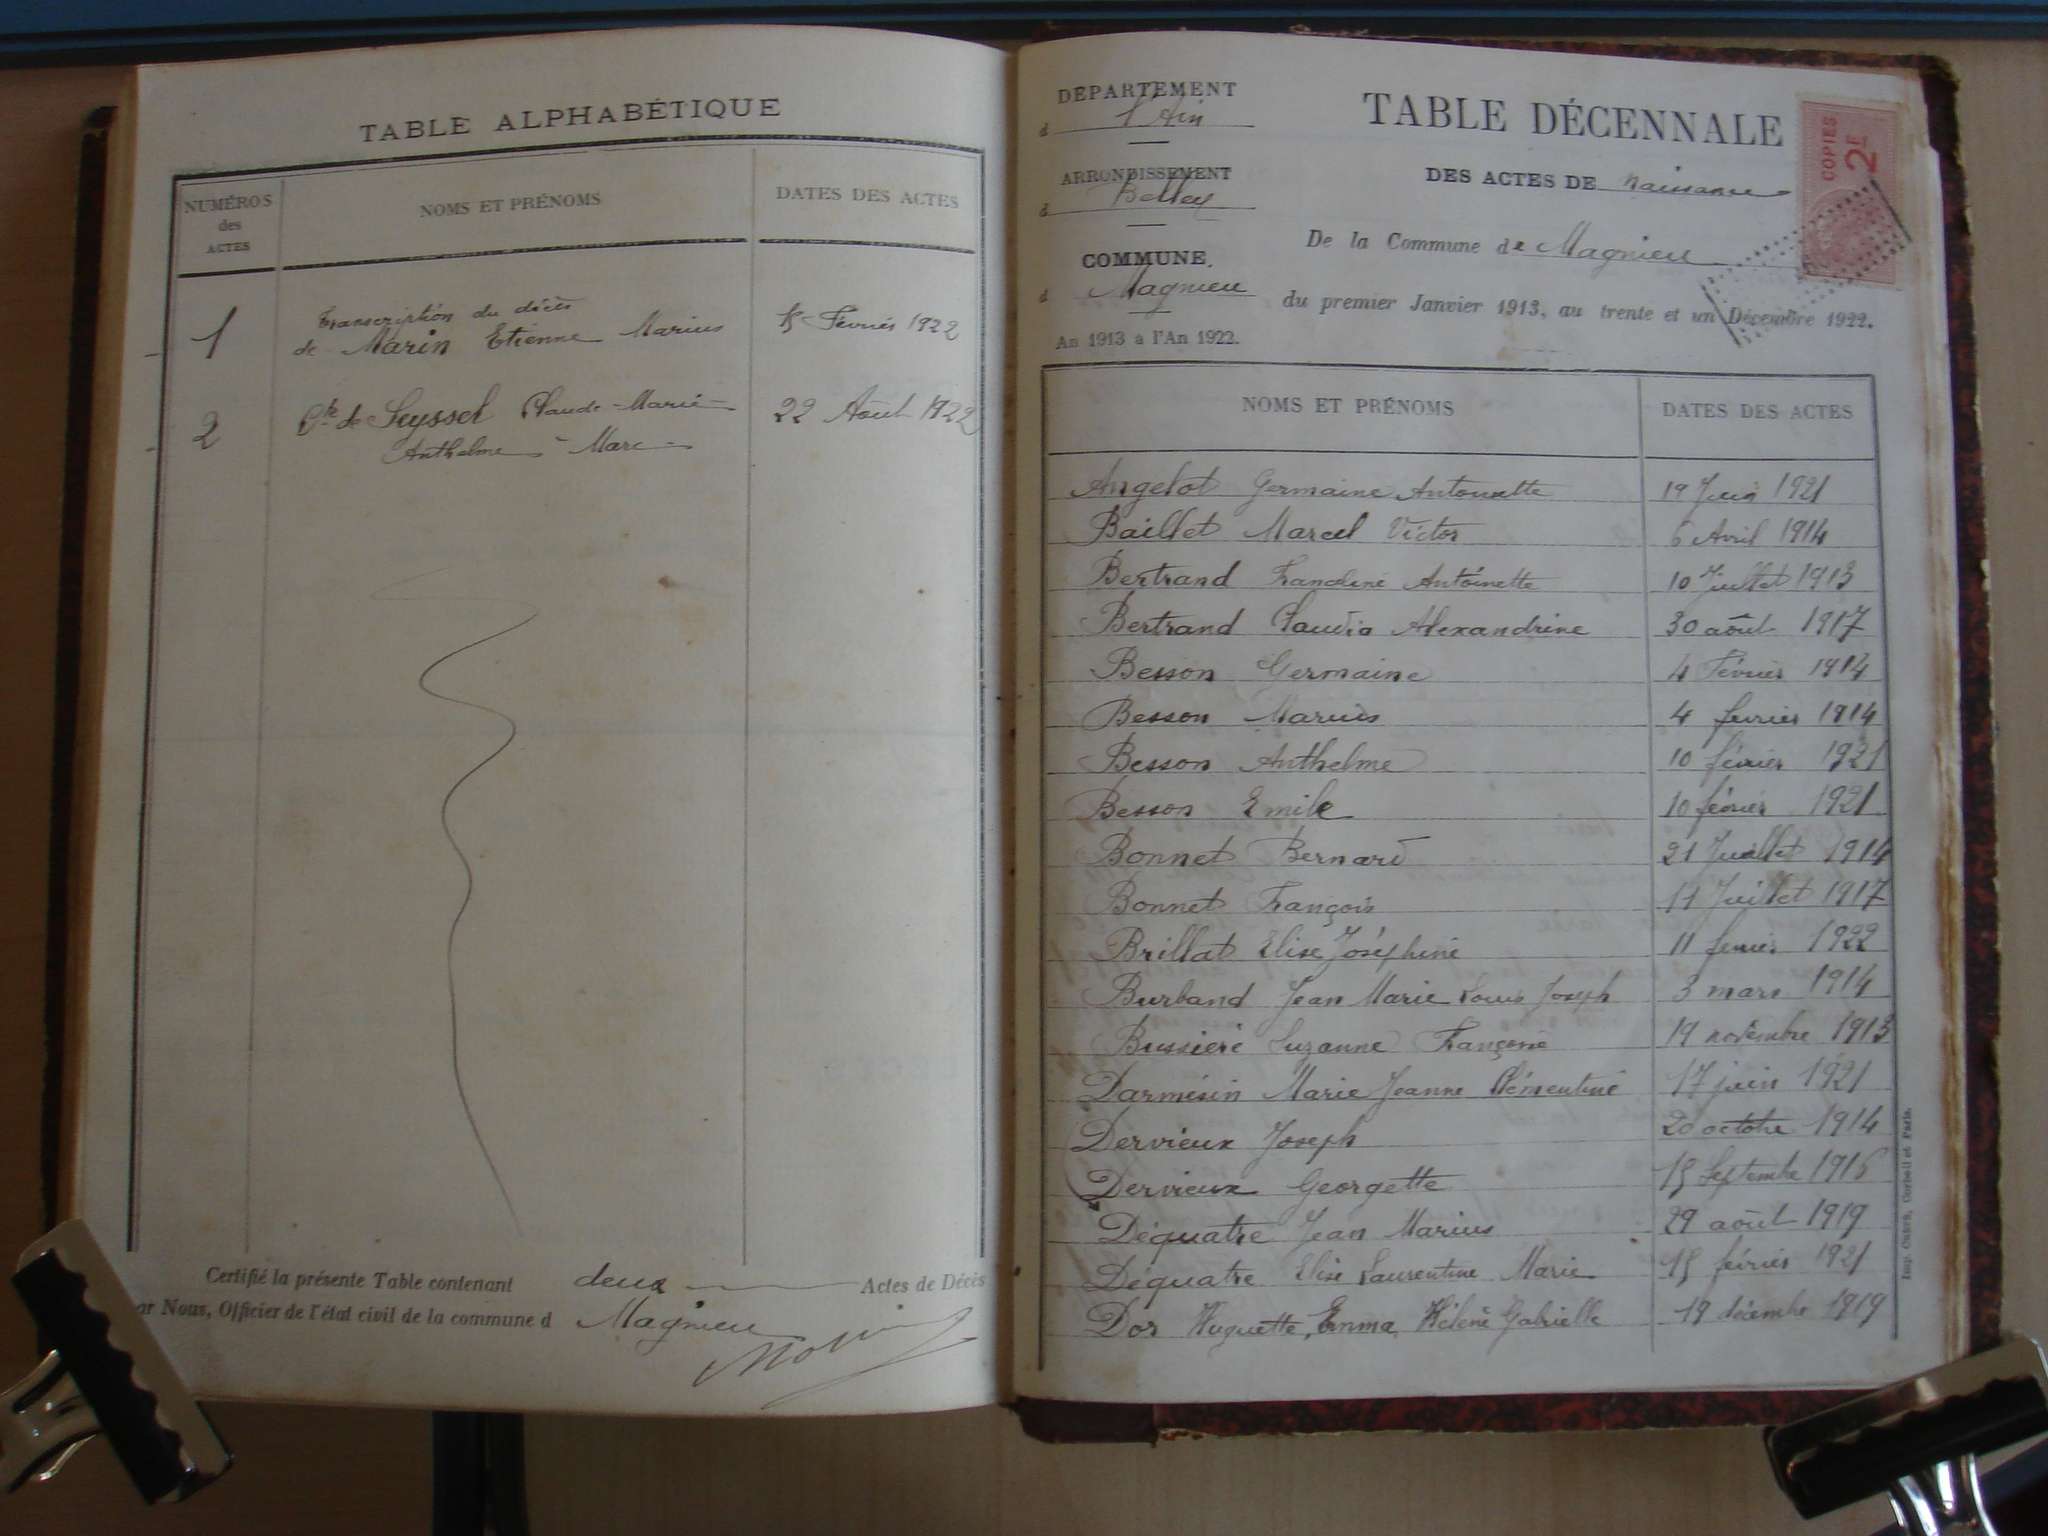 TABLE ALPHABÉTIQUE
NUMÉROS
des
ACTES
NOMS ET PRÉNOMS
DATES DES ACTES
Transcription du décès
1 de Marin Etienne Marius Février 1922
2 Cte de Seyssel Claude-Marie 22 Août 1922
Anthelme - Marc
Certifié la présente Table contenant deux Actes de Décès
ar Nous, Officier de l'état civil de la commune d Magnieu
DEPARTEMENT
d l'Ain
ARRONDISSEMENT
d Belley
COMMUNE
d Magnieu
An 1913 à l'An 1922.
TABLE DÉCENNALE
DES ACTES DE naissance
De la Commune de Magnieu
du premier Janvier 1913, au trente et un Décembre 1922.
COPIES
2F
NOMS ET PRÉNOMS DATES DES ACTES
Angelot Germaine Antoinette 19 Juin 1921
Baillet Marcel Victor 6 Avril 1914
Bertrand Francline Antoinette 10 Juillet 1913
Bertrand Claudia Alexandrine 30 août 1917
Besson Germaine 4 Février 1914
Besson Marius 4 fevrier 1914
Besson Anthelme 10 février 1921
Besson Emile 10 février 1921
Bonnet Bernard 21 Juillet 1914
Bonnet François 11 Juillet 1917
Brillat Elise Joséphine 11 fevrier 1922
Burband Jean Marie Louis Joseph 3 mars 1914
Bussière Suzanne Françoise 19 novembre 1913
Darmésin Marie Jeanne Clémentine 17 juin 1921
Dervieux Joseph 20 octobre 1914
Dervieux Georgette 15 Septembre 1916
Déquatre Jean Marius 29 août 1919
Déquatre Elise Laurentine Marie 15 février 1921
Dor Huguette, Emma, Hélène Gabrielle 19 décembre 1919
Imp. Crété, Corbeil et Paris.